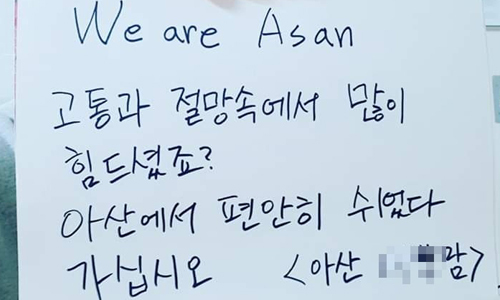 We are Asan
고통과 절망속에서 많이
힘드셨죠?
아산에서 편안히 쉬었다
가십시오 <아산 맘>